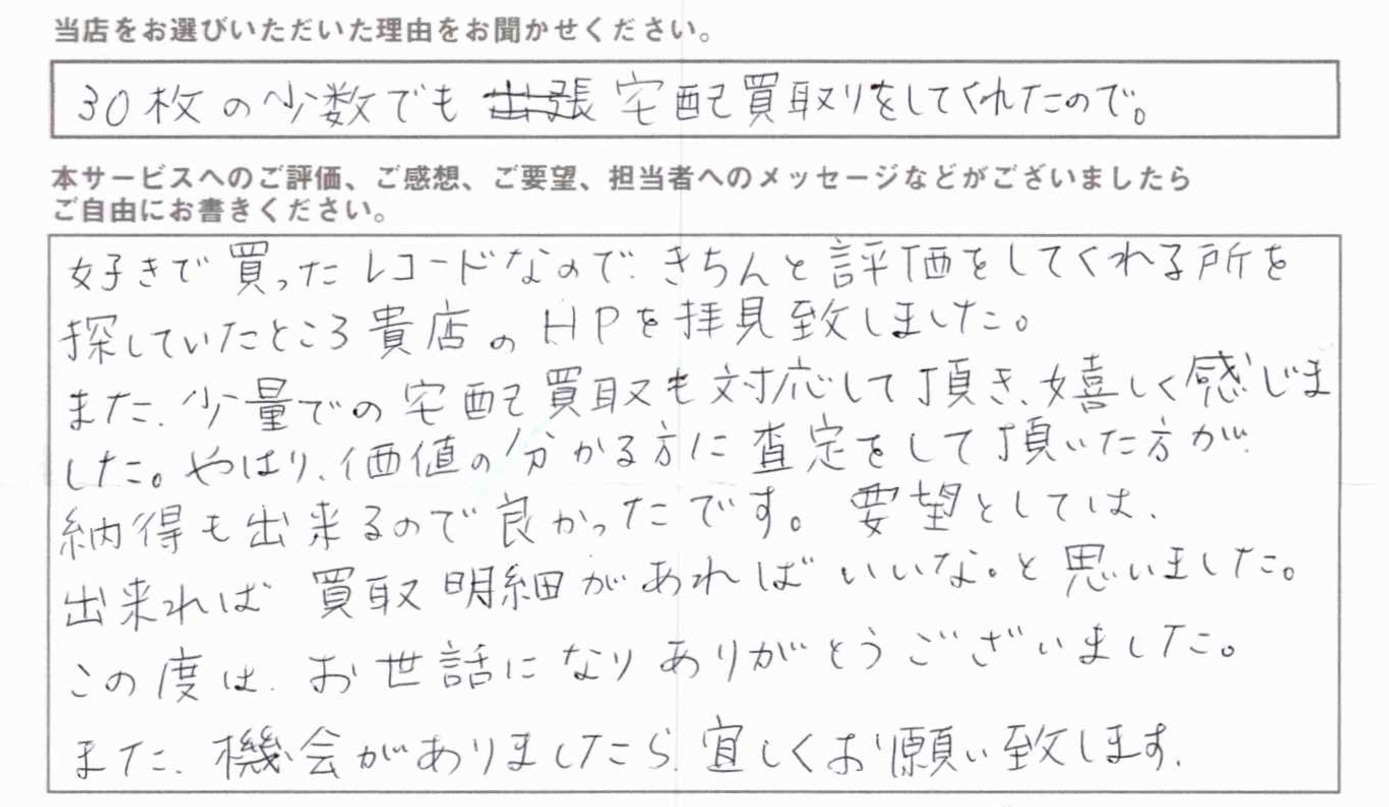 当店をお選びいただいた理由をお聞かせください。
30枚の少数でも 出張 宅配買取りをしてくれたので。
本サービスへのご評価、ご感想、ご要望、担当者へのメッセージなどがございましたら
ご自由にお書きください。
好きで買ったレコードなので、きちんと評価をしてくれる所を
探していたところ貴店のHPを拝見致しました。
また、少量での宅配買取も対応して頂き、嬉しく感じま
した。やはり、価値の分かる方に査定をして頂いた方が、
納得も出来るので良かったです。要望としては、
出来れば買取明細があればいいな。と思いました。
この度は、お世話になりありがとうございました。
また、機会がありましたら、宜しくお願い致します。